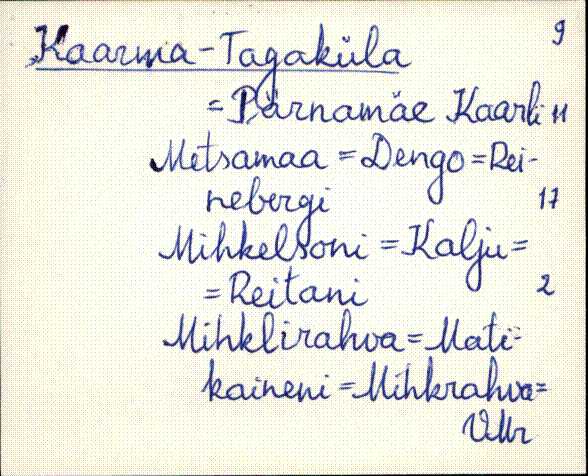 9
Kaarma-Tagaküla
= Pärnamäe Kaarli 11
Metsamaa = Dengo = Rei-
nebergi 17
Mihkelsoni = Kalju =
= Reitani 2
Mihklirahva = Mati-
kaineni = Mihkrahva =